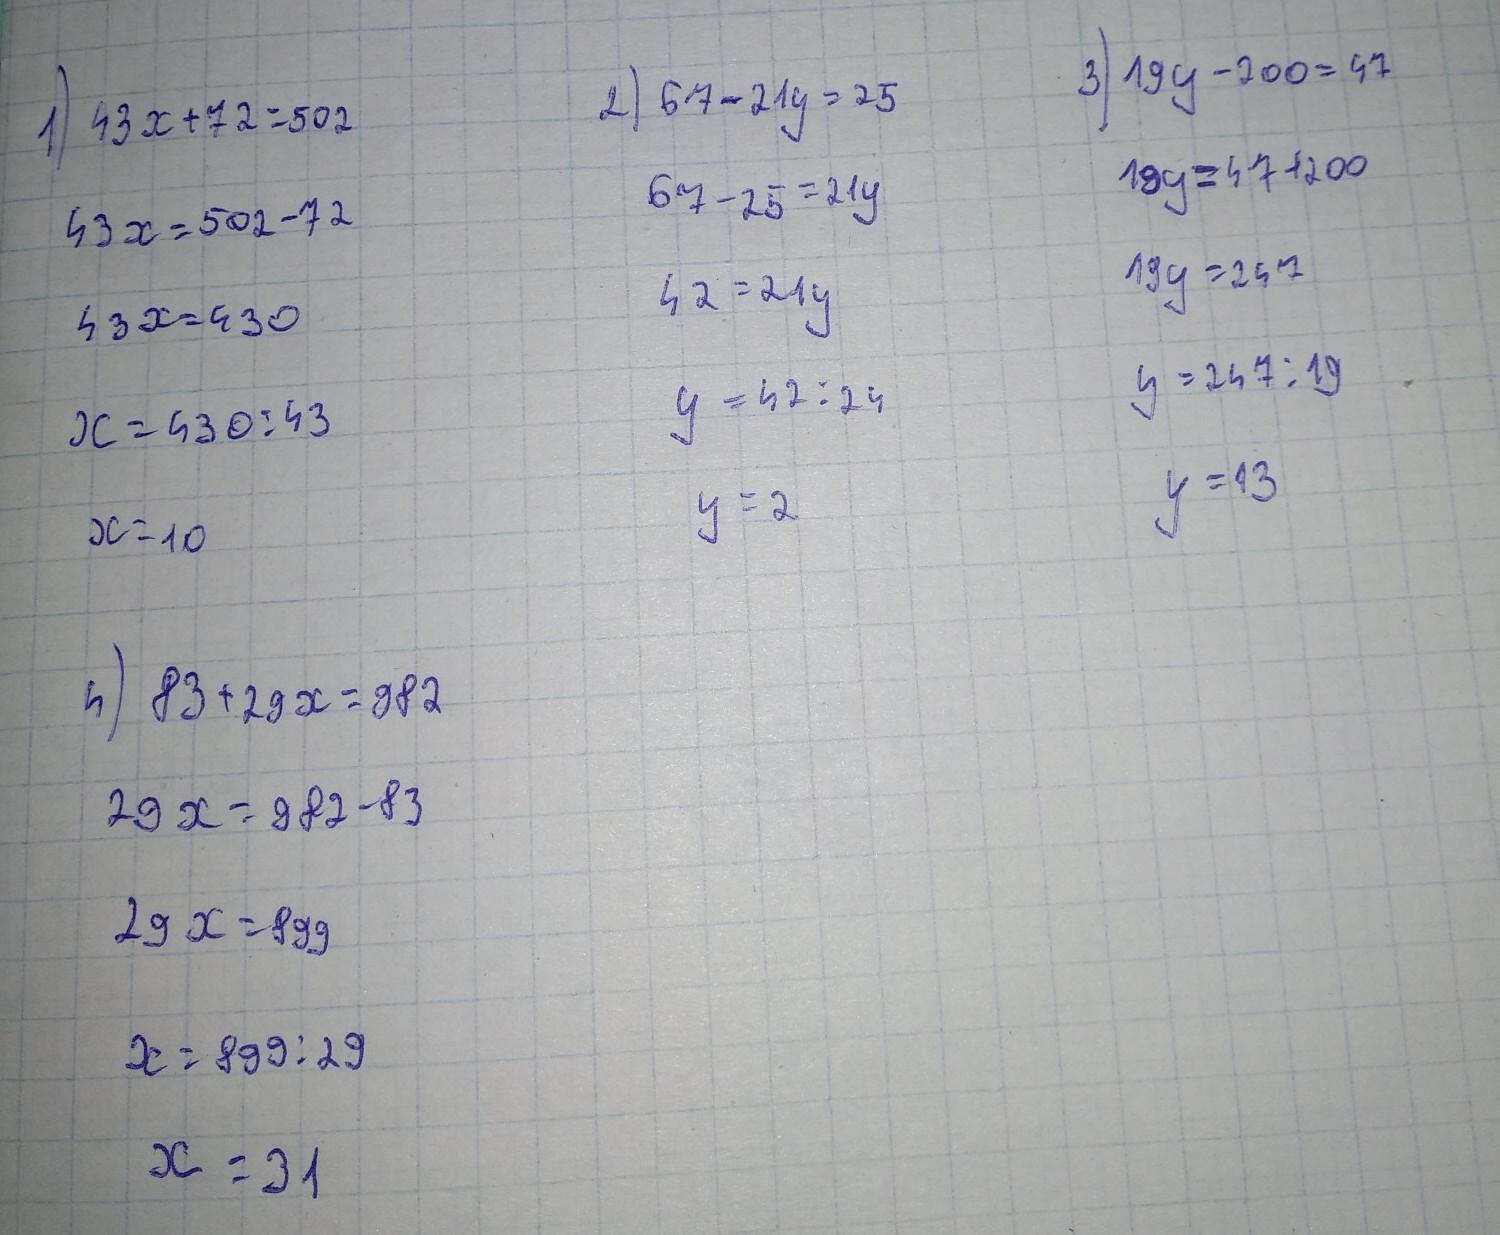 1) 43x+72=502
43x=502-72
43x=430
x=430:43
x=10
2) 67-21y=25
67-25=21y
42=21y
y=42:24
y=2
3) 19y-200=47
19y=47+200
19y=247
y=247:19
y=13
4) 83+29x=982
29x=982-83
29x=899
x=899:29
x=31